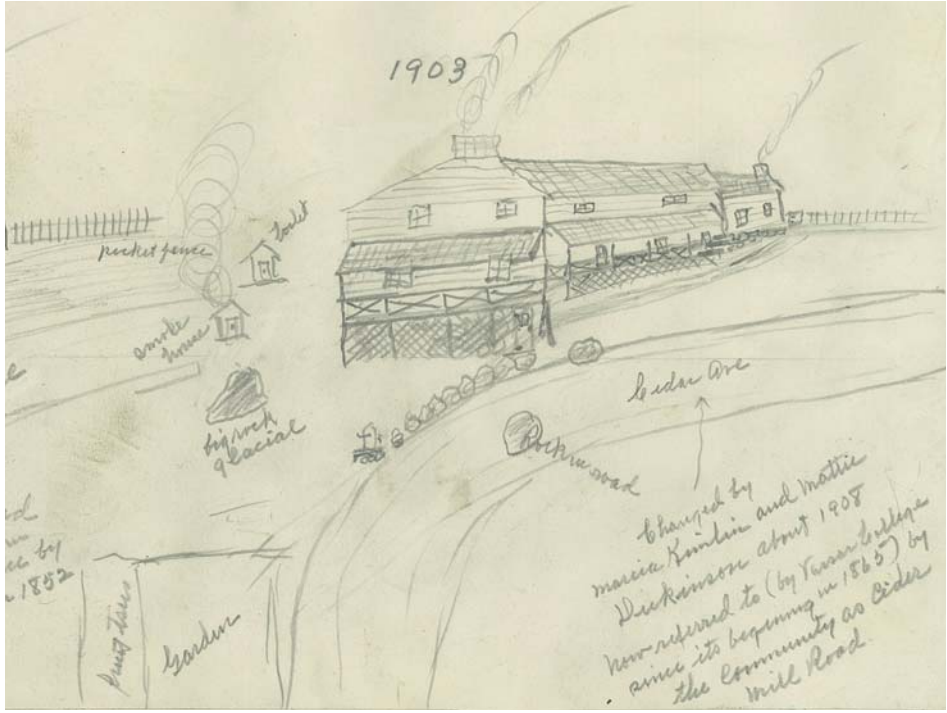 1903
toilet
picket fence
smoke
house
big rock
glacial
Rock in road
Cedar Ave
Changed by
Marcia Kimlin and Mattie
Dickinson about 1908
now referred to (by Vassar College
since its beginning in 1865) by
the Community as Cider
Mill Road.
by
1852
Fruit Trees
Garden